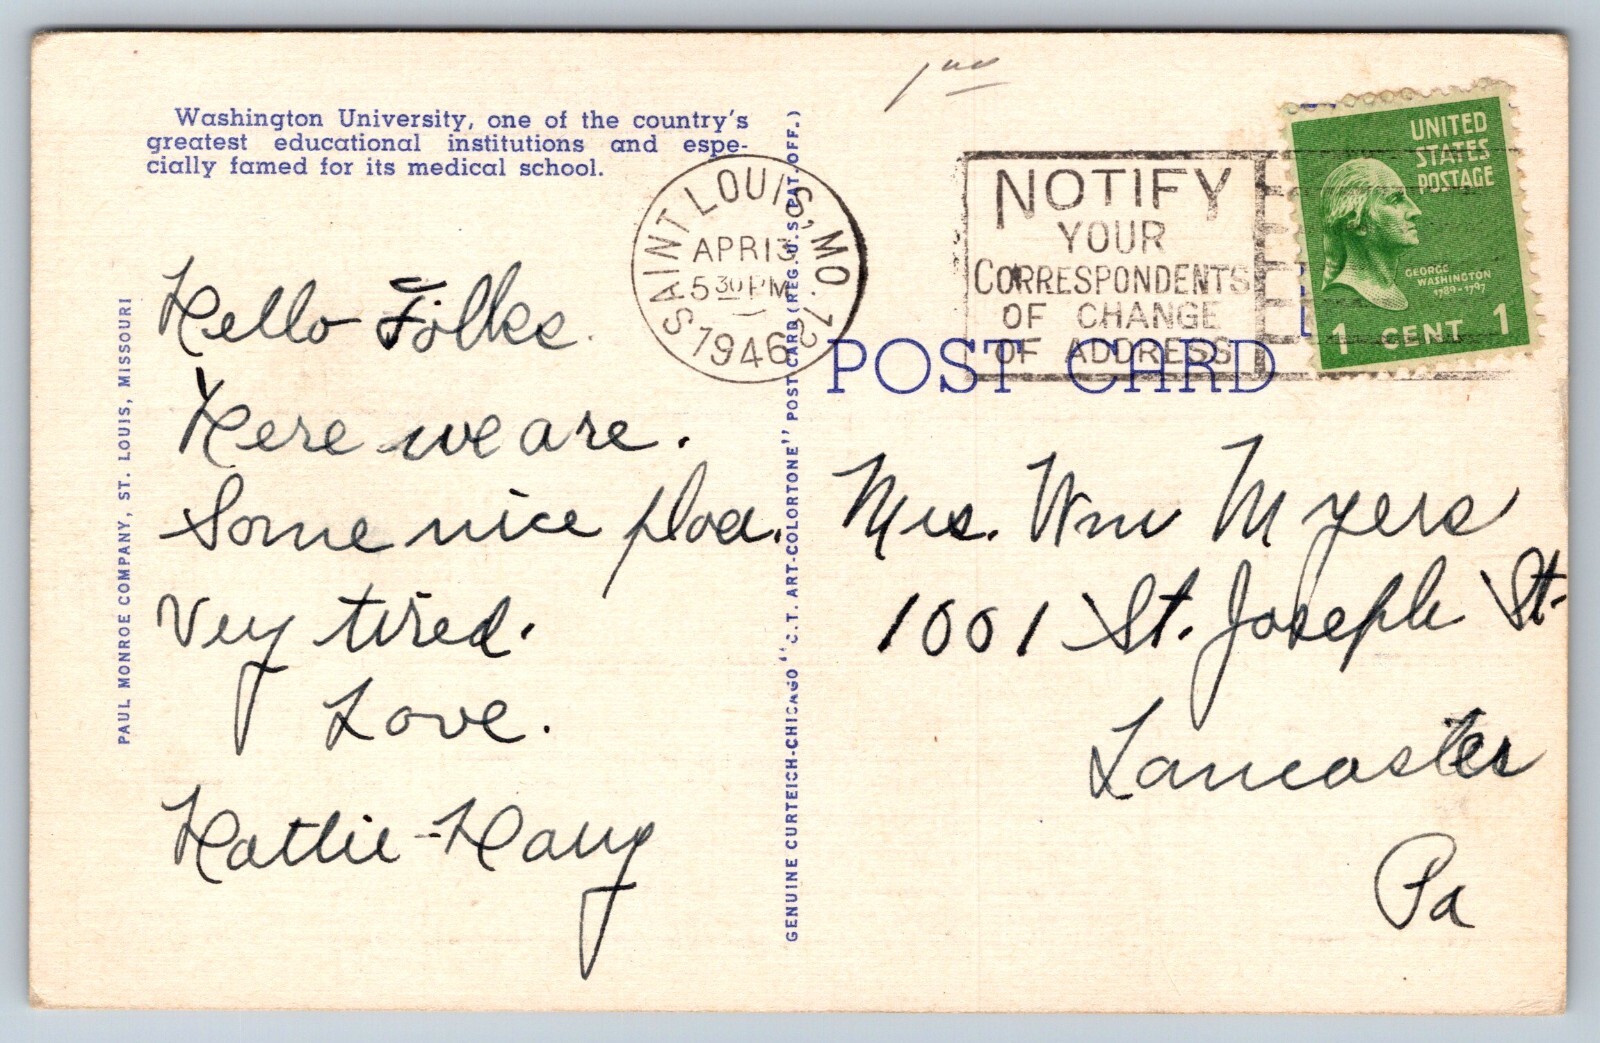 Washington University, one of the country's
greatest educational institutions and espe-
cially famed for its medical school.
PAUL MONROE COMPANY, ST. LOUIS, MISSOURI
Hello Folks.
Here we are.
Some nice place.
Very tired.
Love.
Hattie-Harry
GENUINE CURTEICH-CHICAGO "C.T. ART-COLORTONE" POST CARD (REG. U.S. PAT. OFF.)
SAINT LOUIS, MO. 12
APR 13
5 30 PM
1946
NOTIFY
YOUR
CORRESPONDENTS
OF CHANGE
OF ADDRESS
UNITED
STATES
POSTAGE
GEORGE
WASHINGTON
1789-1797
1 CENT 1
POST CARD
Mrs. Wm Myers
1001 St. Joseph St.
Lancaster
Pa